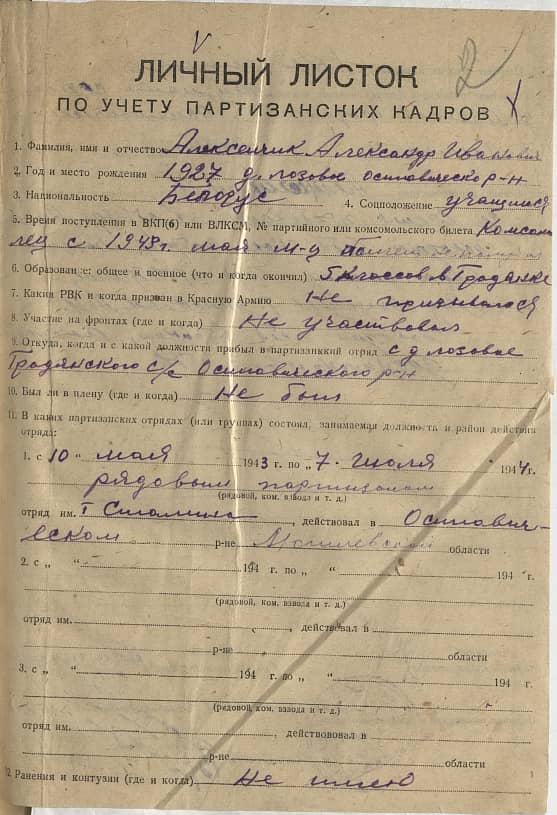 2
ЛИЧНЫЙ ЛИСТОК
ПО УЧЕТУ ПАРТИЗАНСКИХ КАДРОВ
1. Фамилия, имя и отчество Алексейчик Александр Иванович
2. Год и место рождения 1927 д. лозовое осиповическ р-н
3. Национальность Белорус 4. Соцположение учащийся
5. Время поступления в ВКП(б) или ВЛКСМ, № партийного или комсомольского билета Комсомо
лец с 1943г. мая м-ц
6. Образование: общее и военное (что и когда окончил) 5 классов в. Гродянке
7. Каким РВК и когда призван в Красную Армию Не призывался
8. Участие на фронтах (где и когда) Не участвовал
9. Откуда, когда и с какой должности прибыл в партизанский отряд с д лозовое
Гродянского с/с Осиповического р-н
10. Был ли в плену (где и когда) Не был
11. В каких партизанских отрядах (или группах) состоял, занимаемая должность и район действия
отряда:
1. с „10" мая 1943 г. по „7" июля 1944 г.
рядовым партизаном
(рядовой, ком. взвода и т. д.)
отряд им. I Сталина, действовал в Осипович-
еском р-не Могилевской области
2. с „ " 194 г. по „ " 194 г.
(рядовой, ком. взвода и т. д.)
отряд им. , действовал в
р-не области
3. с „ " 194 г. по „ " 194 г.
(рядовой, ком. взвода и т. д.)
отряд им. , действововал в
р-не области
12. Ранения и контузии (где и когда) Не имею